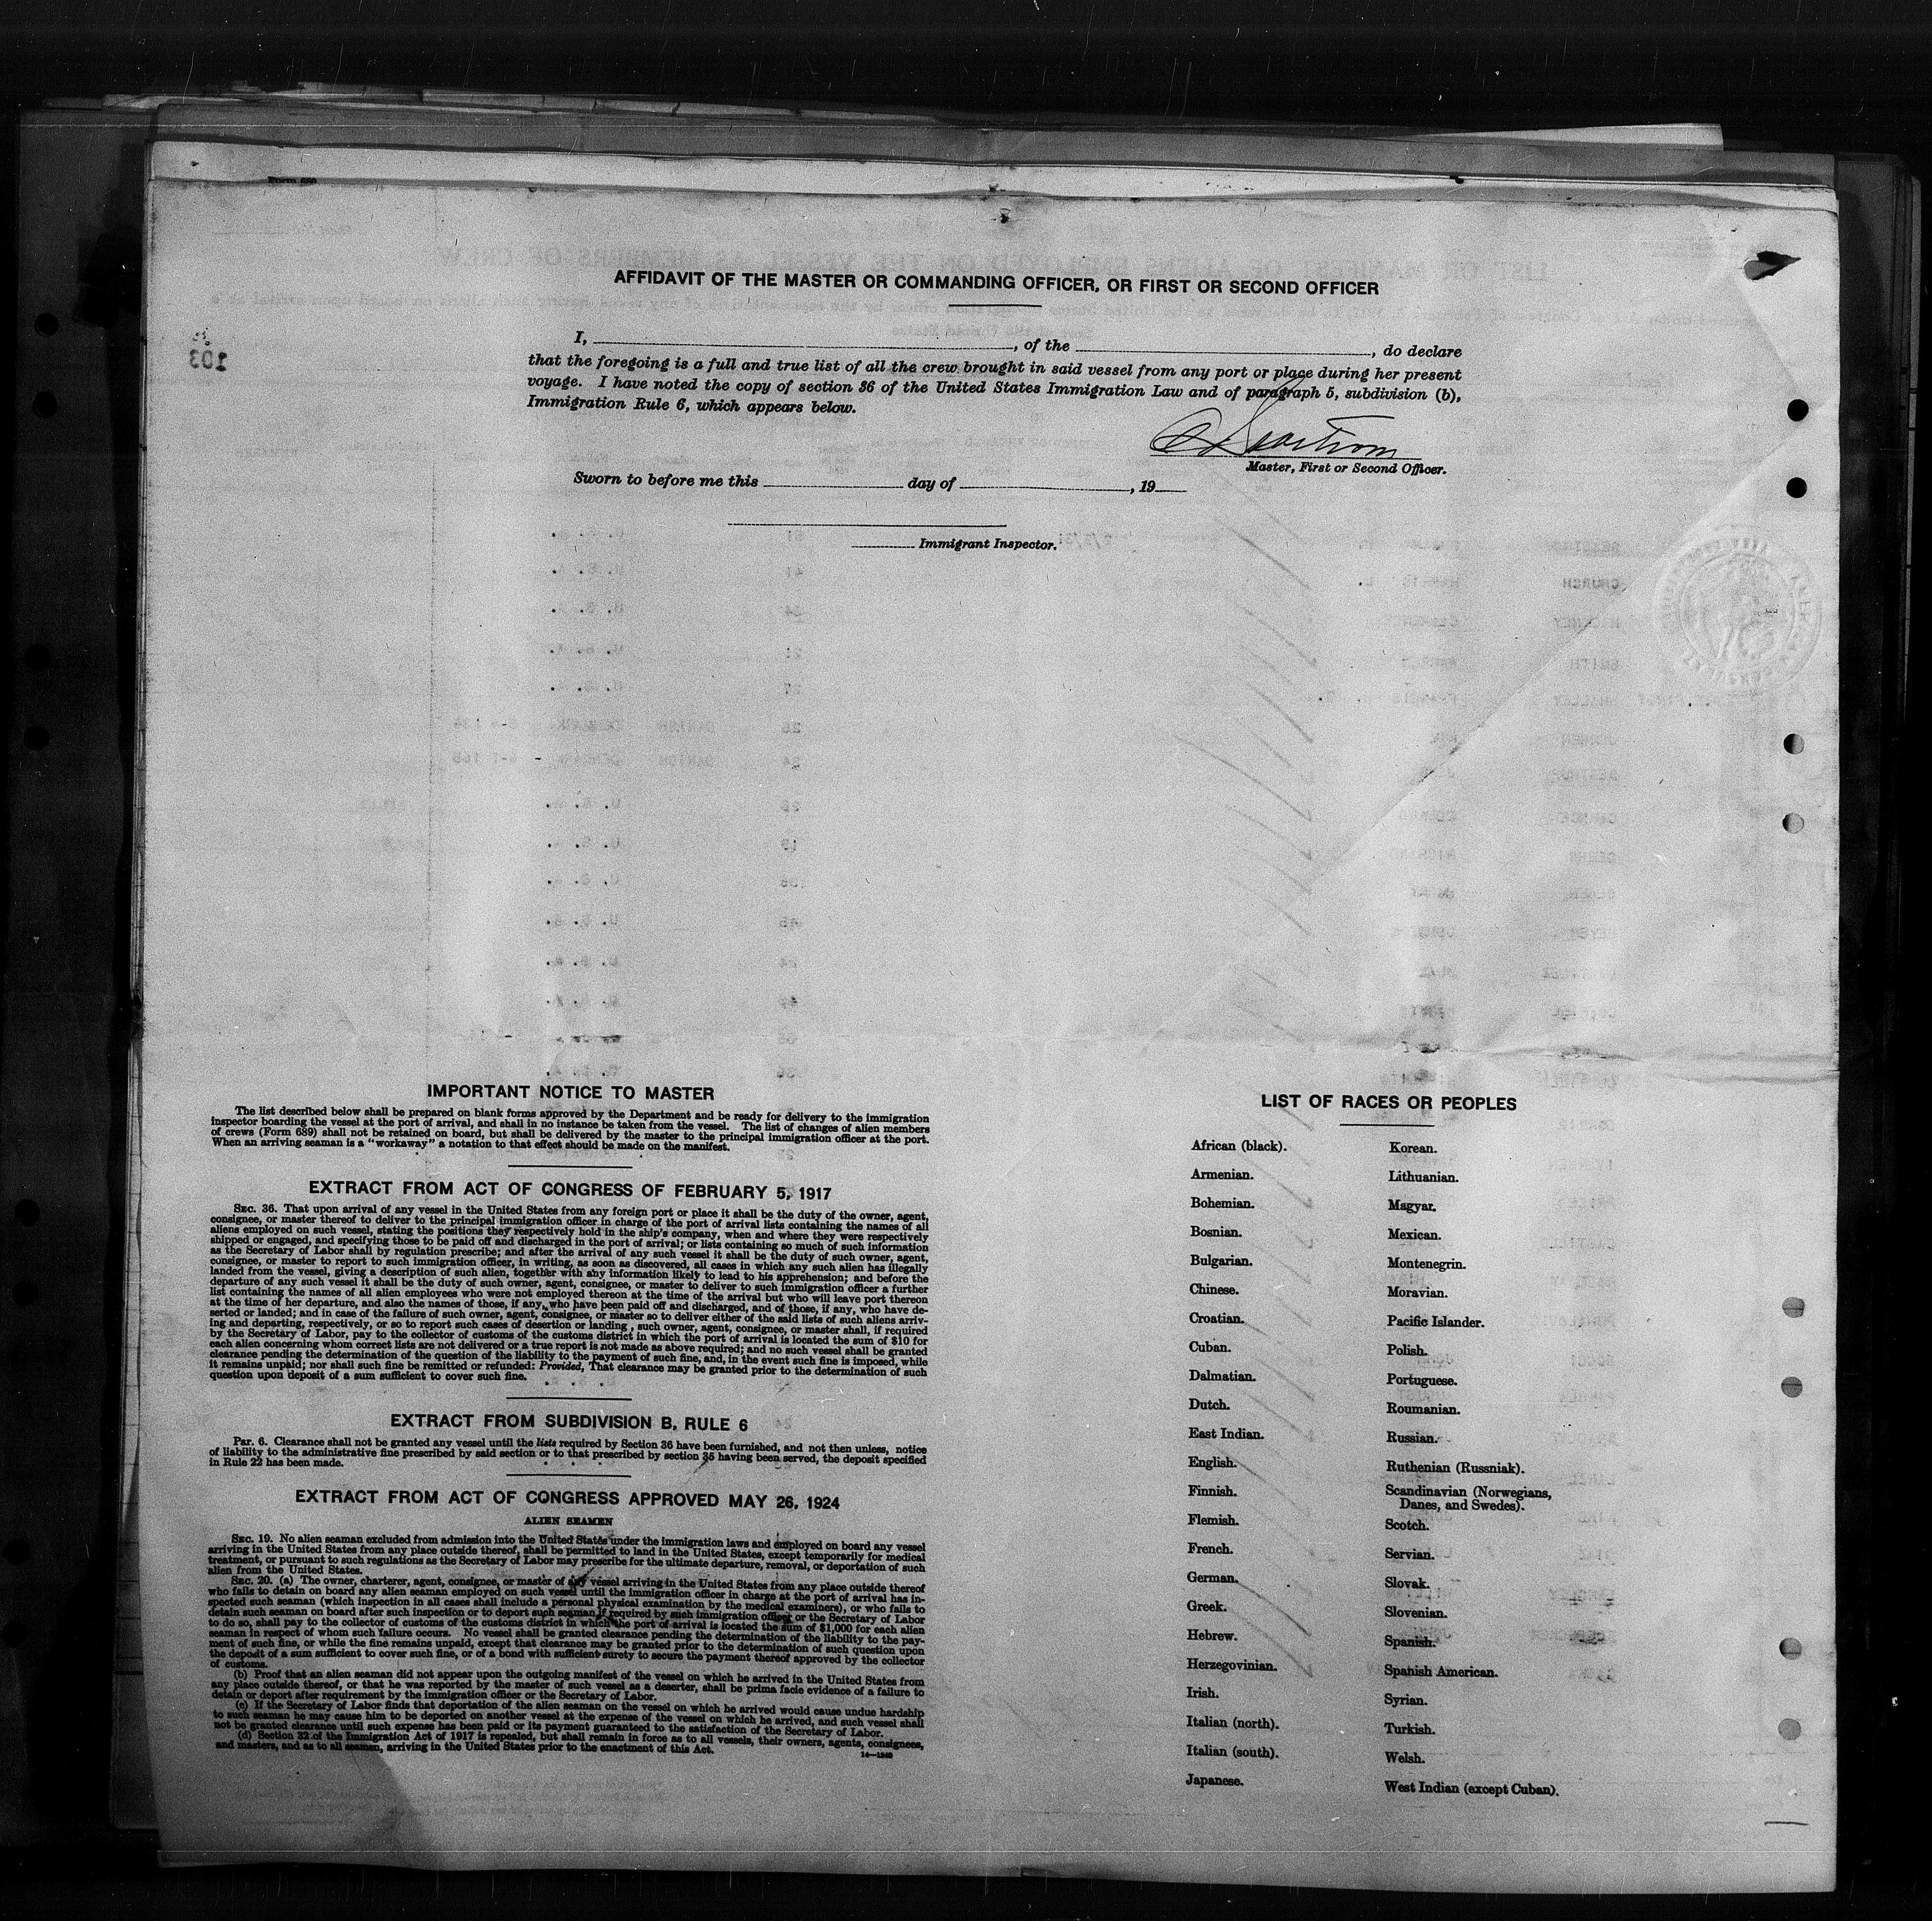 AFFIDAVIT OF THE MASTER OR COMMANDING OFFICER, OR FIRST OR SECOND OFFICER
I, , of the , do declare
that the foregoing is a full and true list of all the crew brought in said vessel from any port or place during her present
voyage. I have noted the copy of section 36 of the United States Immigration Law and of paragraph 5, subdivision (b),
Immigration Rule 6, which appears below.
Master, First or Second Officer.
Sworn to before me this day of , 19
Immigrant Inspector.
IMPORTANT NOTICE TO MASTER
The list described below shall be prepared on blank forms approved by the Department and be ready for delivery to the immigration
inspector boarding the vessel at the port of arrival, and shall in no instance be taken from the vessel. The list of changes of alien members
of crews (Form 689) shall not be retained on board, but shall be delivered by the master to the principal immigration officer at the port.
When an arriving seaman is a "workaway" a notation to that effect should be made on the manifest.
EXTRACT FROM ACT OF CONGRESS OF FEBRUARY 5, 1917
SEC. 36. That upon arrival of any vessel in the United States from any foreign port or place it shall be the duty of the owner, agent,
consignee, or master thereof to deliver to the principal immigration officer in charge of the port of arrival lists containing the names of all
aliens employed on such vessel, stating the positions they respectively hold in the ship's company, when and where they were respectively
shipped or engaged, and specifying those to be paid off and discharged in the port of arrival; or lists containing so much of such information
as the Secretary of Labor shall by regulation prescribe; and after the arrival of any such vessel it shall be the duty of such owner, agent,
consignee, or master to report to such immigration officer, in writing, as soon as discovered, all cases in which any such alien has illegally
landed from the vessel, giving a description of such alien, together with any information likely to lead to his apprehension; and before the
departure of any such vessel it shall be the duty of such owner, agent, consignee, or master to deliver to such immigration officer a further
list containing the names of all alien employees who were not employed thereon at the time of the arrival but who will leave port thereon
at the time of her departure, and also the names of those, if any, who have been paid off and discharged, and of those, if any, who have de-
serted or landed; and in case of the failure of such owner, agent, consignee, or master so to deliver either of the said lists of such aliens arriv-
ing and departing, respectively, or so to report such cases of desertion or landing, such owner, agent, consignee, or master shall, if required
by the Secretary of Labor, pay to the collector of customs of the customs district in which the port of arrival is located the sum of $10 for
each alien concerning whom correct lists are not delivered or a true report is not made as above required; and no such vessel shall be granted
clearance pending the determination of the question of the liability to the payment of such fine, and, in the event such fine is imposed, while
it remains unpaid; nor shall such fine be remitted or refunded: Provided, That clearance may be granted prior to the determination of such
question upon deposit of a sum sufficient to cover such fine.
EXTRACT FROM SUBDIVISION B, RULE 6
Par. 6. Clearance shall not be granted any vessel until the lists required by Section 36 have been furnished, and not then unless, notice
of liability to the administrative fine prescribed by said section or to that prescribed by section 35 having been served, the deposit specified
in Rule 22 has been made.
EXTRACT FROM ACT OF CONGRESS APPROVED MAY 26, 1924
ALIEN SEAMEN
SEC. 19. No alien seaman excluded from admission into the United States under the immigration laws and employed on board any vessel
arriving in the United States from any place outside thereof, shall be permitted to land in the United States, except temporarily for medical
treatment, or pursuant to such regulations as the Secretary of Labor may prescribe for the ultimate departure, removal, or deportation of such
alien from the United States.
SEC. 20. (a) The owner, charterer, agent, consignee, or master of any vessel arriving in the United States from any place outside thereof
who fails to detain on board any alien seaman employed on such vessel until the immigration officer in charge at the port of arrival has in-
spected such seaman (which inspection in all cases shall include a personal physical examination by the medical examiners), or who fails to
detain such seaman on board after such inspection or to deport such seaman if required by such immigration officer or the Secretary of Labor
to do so, shall pay to the collector of customs of the customs district in which the port of arrival is located the sum of $1,000 for each alien
seaman in respect of whom such failure occurs. No vessel shall be granted clearance pending the determination of the liability to the pay-
ment of such fine, or while the fine remains unpaid, except that clearance may be granted prior to the determination of such question upon
the deposit of a sum sufficient to cover such fine, or of a bond with sufficient surety to secure the payment thereof approved by the collector
of customs.
(b) Proof that an alien seaman did not appear upon the outgoing manifest of the vessel on which he arrived in the United States from
any place outside thereof, or that he was reported by the master of such vessel as a deserter, shall be prima facie evidence of a failure to
detain or deport after requirement by the immigration officer or the Secretary of Labor.
(c) If the Secretary of Labor finds that deportation of the alien seaman on the vessel on which he arrived would cause undue hardship
to such seaman he may cause him to be deported on another vessel at the expense of the vessel on which he arrived, and such vessel shall
not be granted clearance until such expense has been paid or its payment guaranteed to the satisfaction of the Secretary of Labor.
(d) Section 32 of the Immigration Act of 1917 is repealed, but shall remain in force as to all vessels, their owners, agents, consignees,
and masters, and as to all seamen, arriving in the United States prior to the enactment of this Act.
LIST OF RACES OR PEOPLES
African (black).
Armenian.
Bohemian.
Bosnian.
Bulgarian.
Chinese.
Croatian.
Cuban.
Dalmatian.
Dutch.
East Indian.
English.
Finnish.
Flemish.
French.
German.
Greek.
Hebrew.
Herzegovinian.
Irish.
Italian (north).
Italian (south).
Japanese.
Korean.
Lithuanian.
Magyar.
Mexican.
Montenegrin.
Moravian.
Pacific Islander.
Polish.
Portuguese.
Roumanian.
Russian.
Ruthenian (Russniak).
Scandinavian (Norwegians,
Danes, and Swedes).
Scotch.
Servian.
Slovak.
Slovenian.
Spanish.
Spanish American.
Syrian.
Turkish.
Welsh.
West Indian (except Cuban).